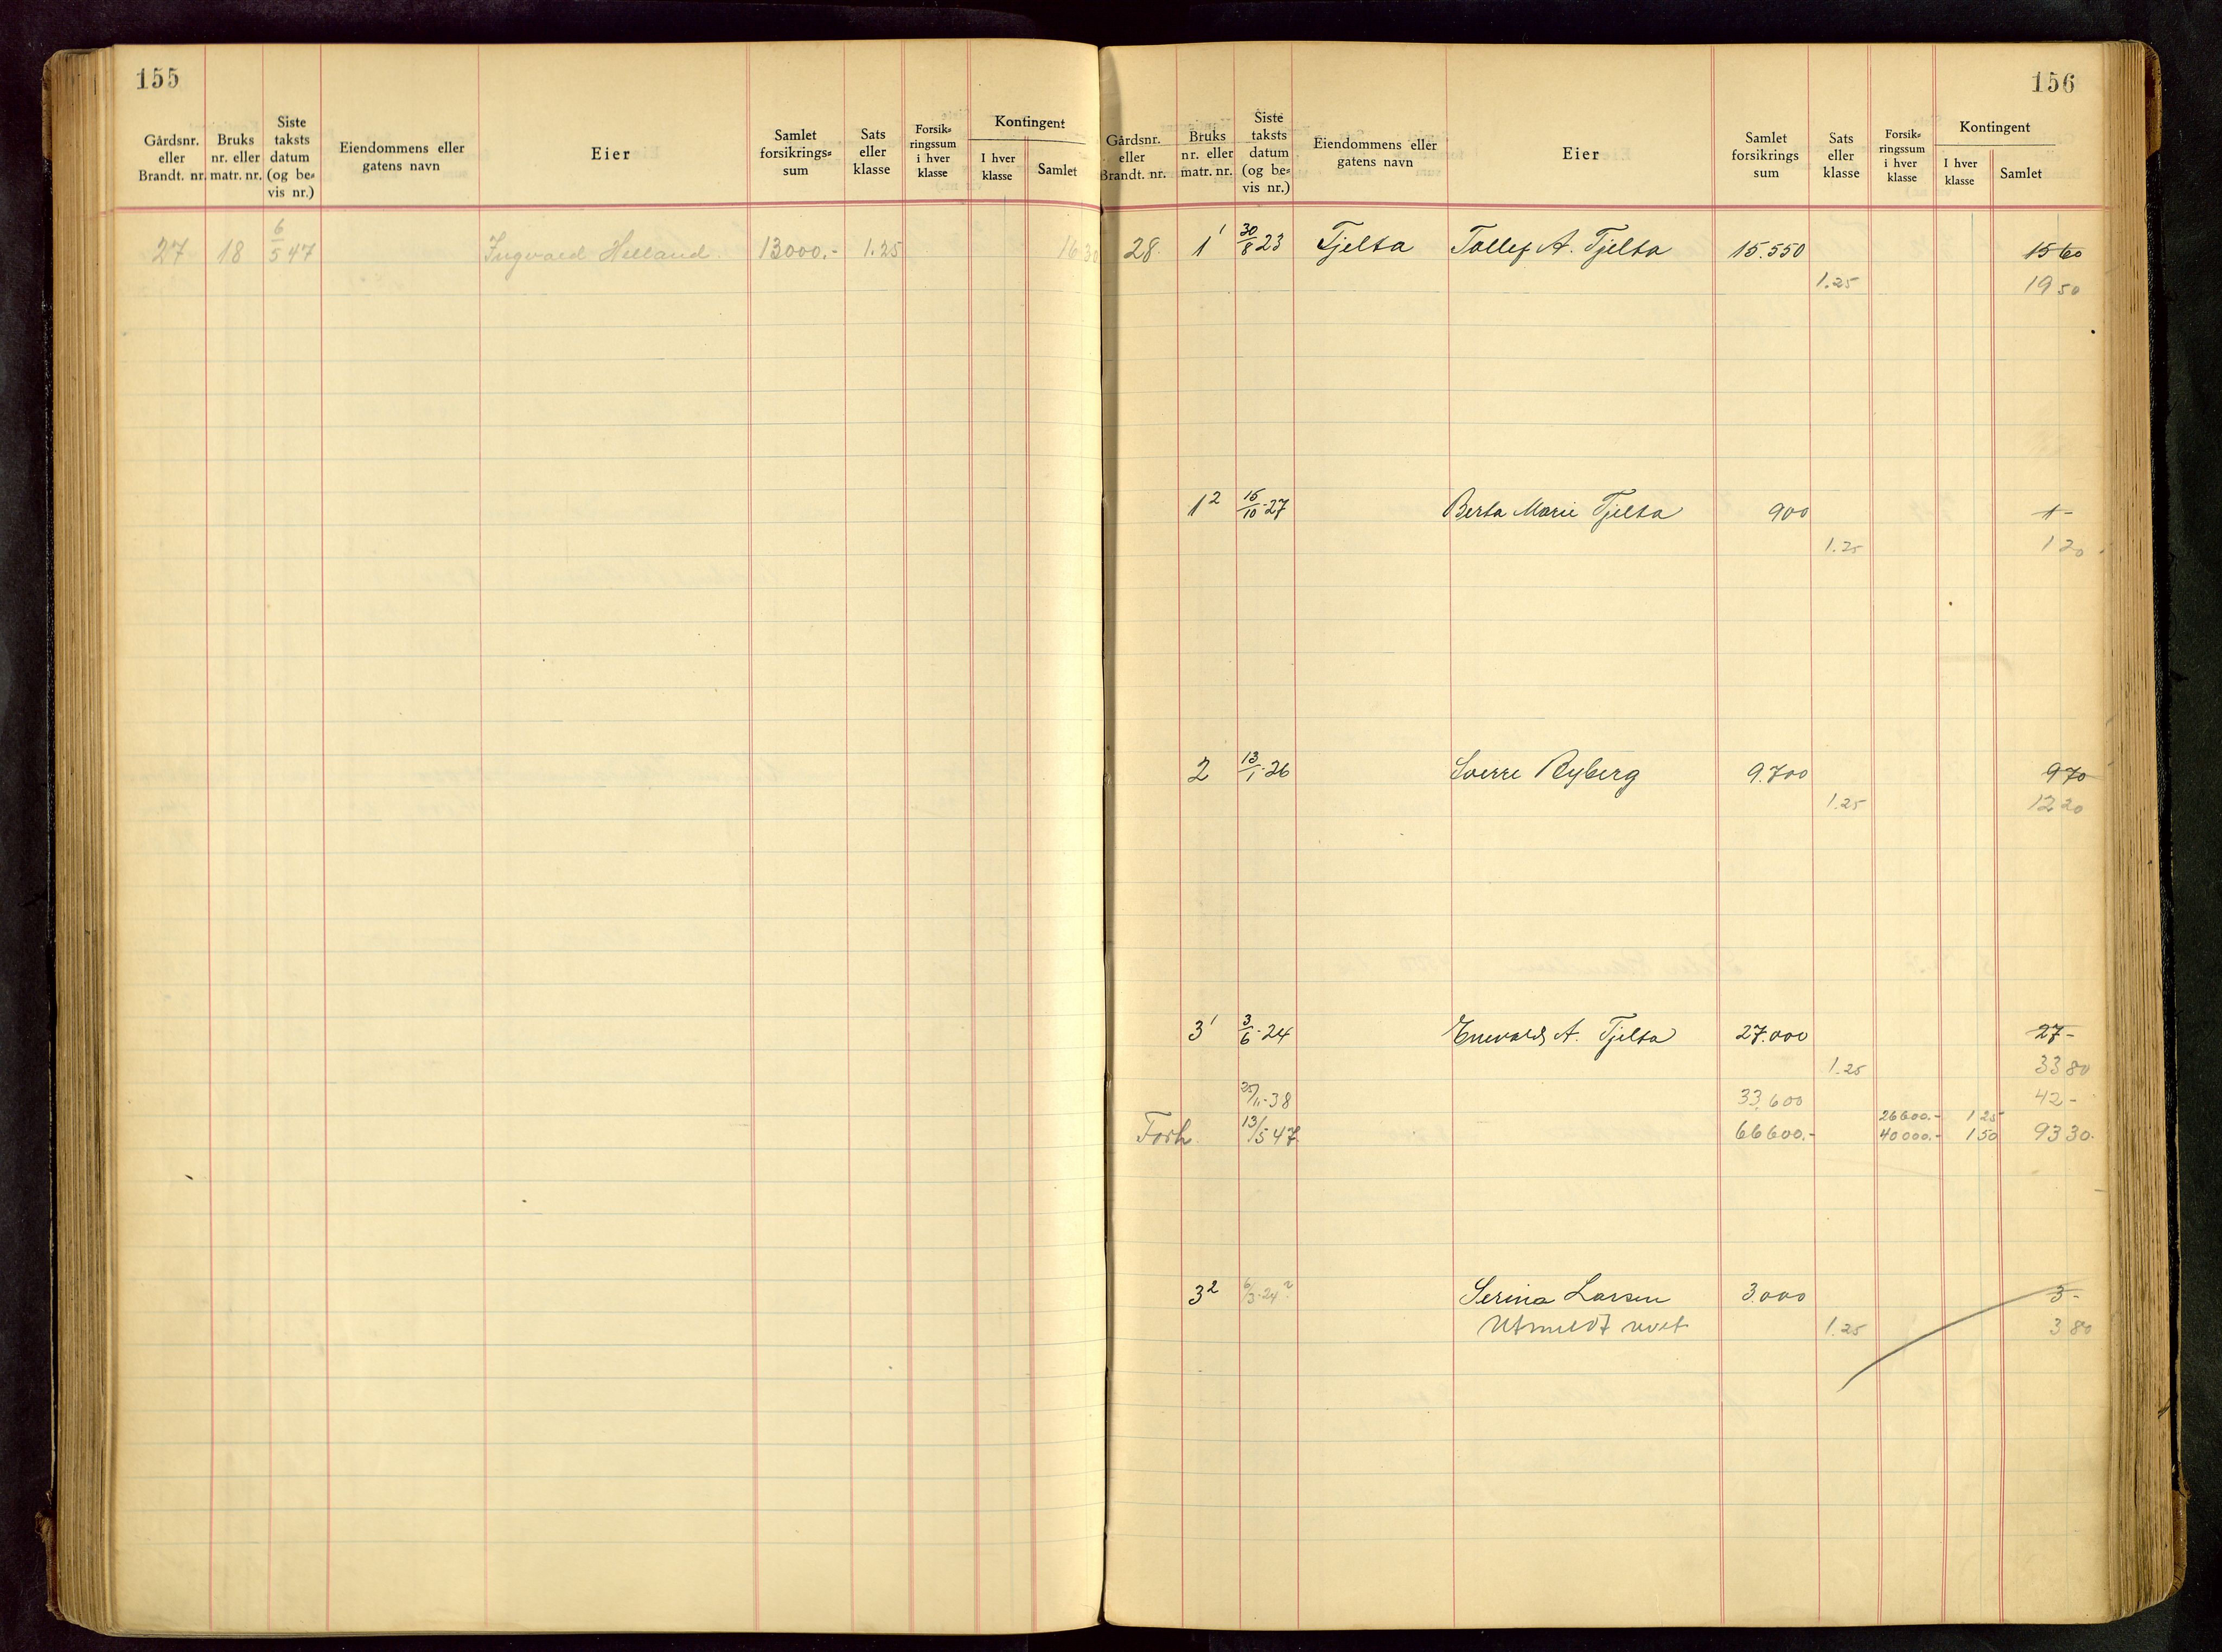 155
Gårdsnr. eller Brandt. nr. Bruks nr. eller matr. nr. Siste taksts datum (og be= vis nr.) Eiendommens eller gatens navn Eier Samlet forsikrings= sum Sats eller klasse Forsik= ringssum i hver klasse Kontingent I hver klasse Samlet
27 18 6/5 47 Ingvald Helland. 13000.- 1.25 16 30
156
Gårdsnr. eller Brandt. nr. Bruks nr. eller matr. nr. Siste taksts datum (og be= vis nr.) Eiendommens eller gatens navn Eier Samlet forsikrings sum Sats eller klasse Forsik= ringssum i hver klasse Kontingent I hver klasse Samlet
28. 1¹ 30/8 23 Tjelta Tollef A. Tjelta 15.550 15 60
1.25 19 50
1² 15/10-27 Berta Marie Tjelta 900 1-
1.25 1 20
2 13/1-26 Sverre Ryberg 9.700 9 70
1.25 12 20
3¹ 3/6-24 Enevald A. Tjelta 27.000 27-
1.25 33 80
25/11-38 33,600 42-
26600.- 1 25
Forh. 13/5 47 66600.- 40000.- 1 50 93 30.
3² 6/3-24? Serina Larsen 3.000 3-
Utmeldt 1.25 3 80